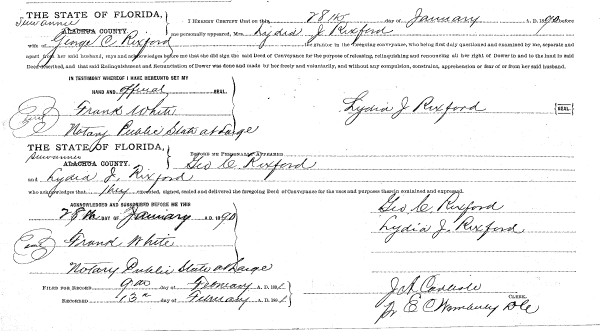 THE STATE OF FLORIDA,
Suwannee
ALACHUA COUNTY.
I HEREBY CERTIFY that on this 28th day of January A. D. 1890 before
me personally appeared, Mrs. Lydia J Rixford
wife of George C. Rixford the grantor in the foregoing conveyance, who being first duly questioned and examined by me, separate and
apart from her said husband, says and acknowledges before me that she did sign the said Deed of Conveyance for the purpose of releasing, relinquishing and renouncing all her right of Dower in and to the land in said
Deed described, and that said Relinquishment and Renunciation of Dower was done and made by her freely and voluntarily, and without any compulsion, constraint, apprehension or fear of or from her said husband.
IN TESTIMONY WHEREOF I HAVE HEREUNTO SET MY
HAND AND official SEAL
Frank White
Notary Public State at Large
Lydia J Rixford SEAL
THE STATE OF FLORIDA,
Suwannee
ALACHUA COUNTY.
BEFORE ME PERSONALLY APPEARED
Geo C. Rixford
and Lydia J. Rixford
who acknowledges that they executed, signed, sealed and delivered the foregoing Deed of Conveyance for the uses and purposes therein explained and expressed.
ACKNOWLEDGED AND SUBSCRIBED BEFORE ME THIS
28th DAY OF January A. D. 1890
Frank White
Notary Public State at Large
Geo C. Rixford
Lydia J. Rixford
FILED FOR RECORD 9th day of February A. D. 1891
RECORDED 13th day of February A. D. 1891
J A Carlisle
CLERK.
pr E C Wimberly D C